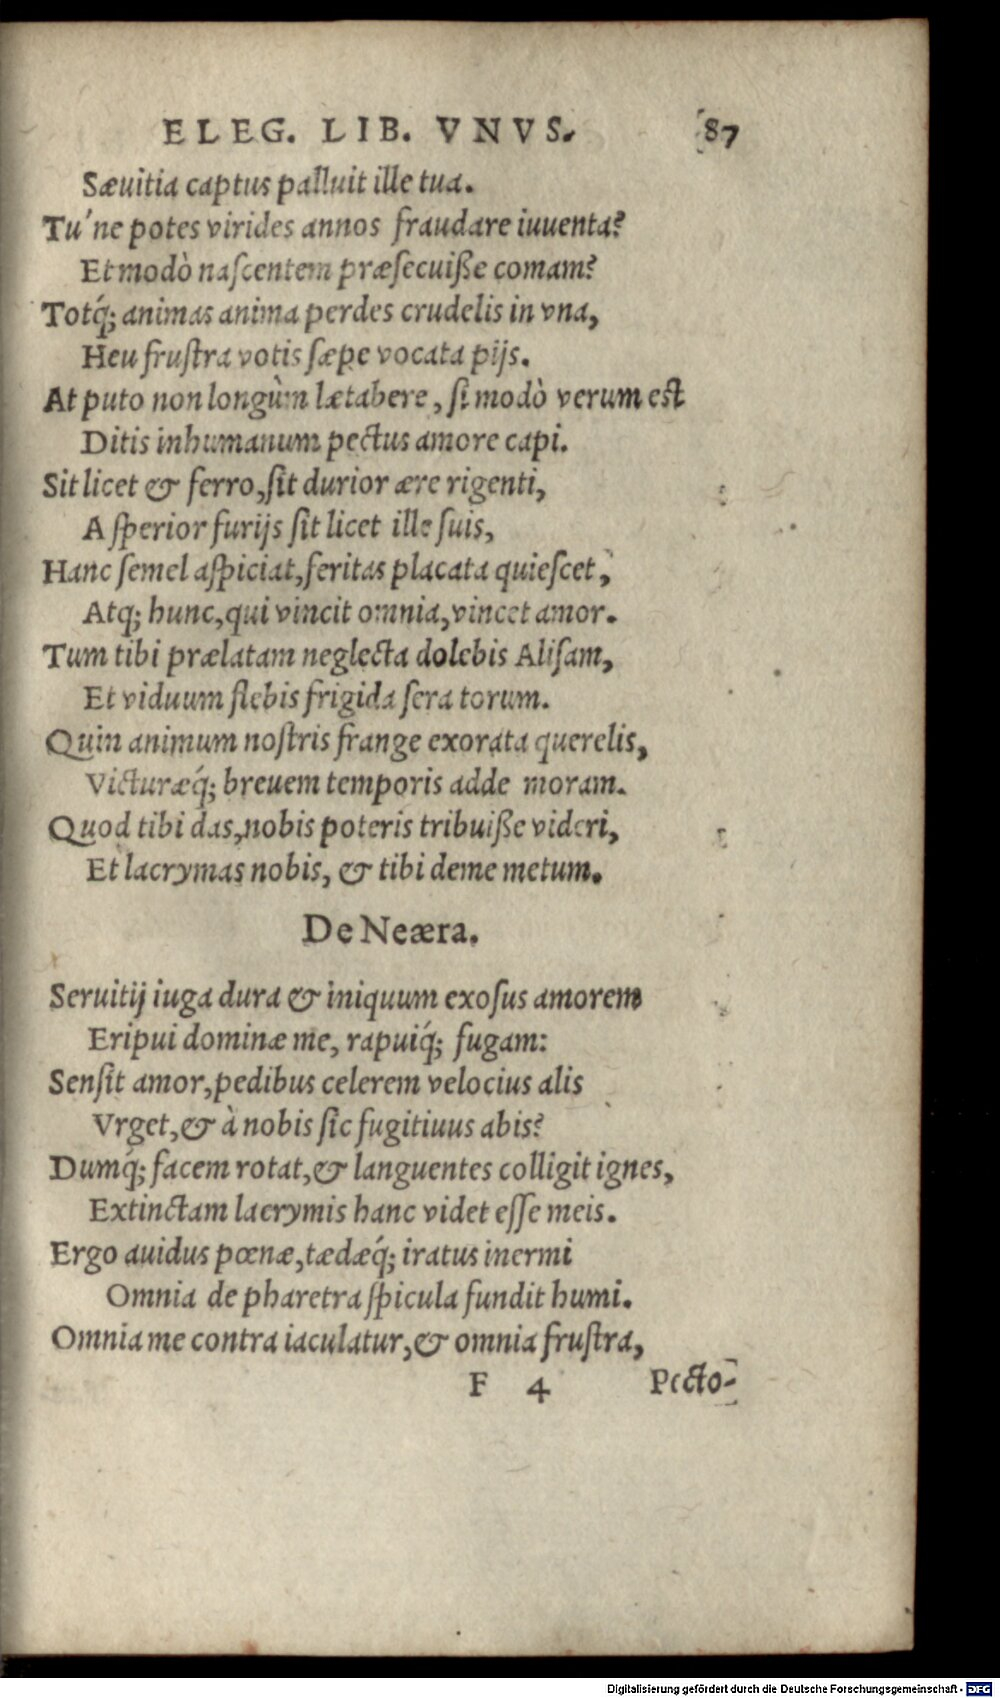 ELEG. LIB. VNVS. 87
Sæuitia captus palluit ille tua.
Tu'ne potes virides annos fraudare iuuenta?
Et modò nascentem præsecuiße comam?
Totq́; animas anima perdes crudelis in vna,
Heu frustra votis sæpe vocata pijs.
At puto non longùm lætabere, si modò verum est
Ditis inhumanum pectus amore capi.
Sit licet & ferro, sit durior ære rigenti,
Asperior furijs sit licet ille suis,
Hanc semel aspiciat, feritas placata quiescet,
Atq; hunc, qui vincit omnia, vincet amor.
Tum tibi prælatam neglecta dolebis Alisam,
Et viduum flebis frigida sera torum.
Quin animum nostris frange exorata querelis,
Victuræq́; breuem temporis adde moram.
Quod tibi das, nobis poteris tribuiße videri,
Et lacrymas nobis, & tibi deme metum.
De Neæra.
Seruitij iuga dura & iniquum exosus amorem
Eripui dominæ me, rapuiq́; fugam:
Sensit amor, pedibus celerem velocius alis
Vrget, & à nobis sic fugitiuus abis?
Dumq́; facem rotat, & languentes colligit ignes,
Extinctam lacrymis hanc videt esse meis.
Ergo auidus pœnæ, tædæq́; iratus inermi
Omnia de pharetra spicula fundit humi.
Omnia me contra iaculatur, & omnia frustra,
F 4 Pecto-
Digitalisierung gefördert durch die Deutsche Forschungsgemeinschaft - DFG